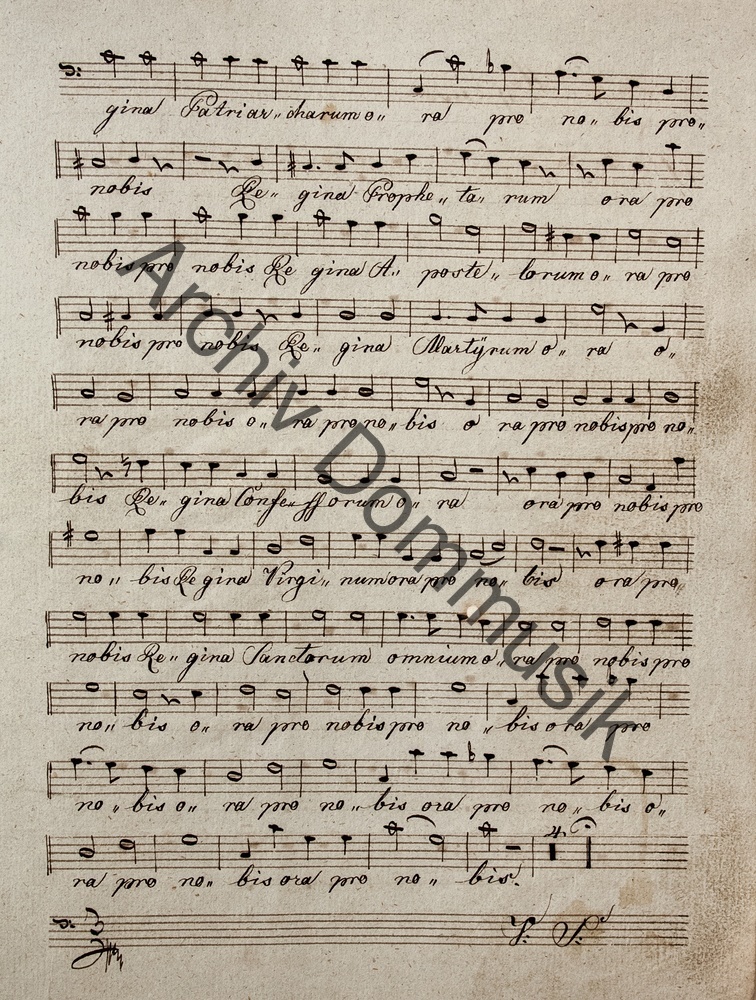 gina Patriar„ charum o„ ra pro no„ bis pro„
nobis Re„ gina Prophe„ ta„ rum ora pro
nobis pro nobis Re gina A„ posto„ lorum o„ ra pro
nobis pro nobis Re„ gina Martÿrum o„ ra o„
ra pro nobis o„ ra pro no„ bis o ra pro nobis pro no„
bis Re„ gina Confe„ ssorum o„ ra ora pro nobis pro
no„ bis Re gina Virgi„ num ora pro no„ bis ora pro„
nobis Re„ gina Sanctorum omnium o„ ra pro nobis pro
no„ bis o„ ra pro nobis pro no„ bis ora pro
no„ bis o„ ra pro no„ bis ora pro no„ bis o„
ra pro no„ bis ora pro no„ bis.
4
V: S:
Archiv Dommusik